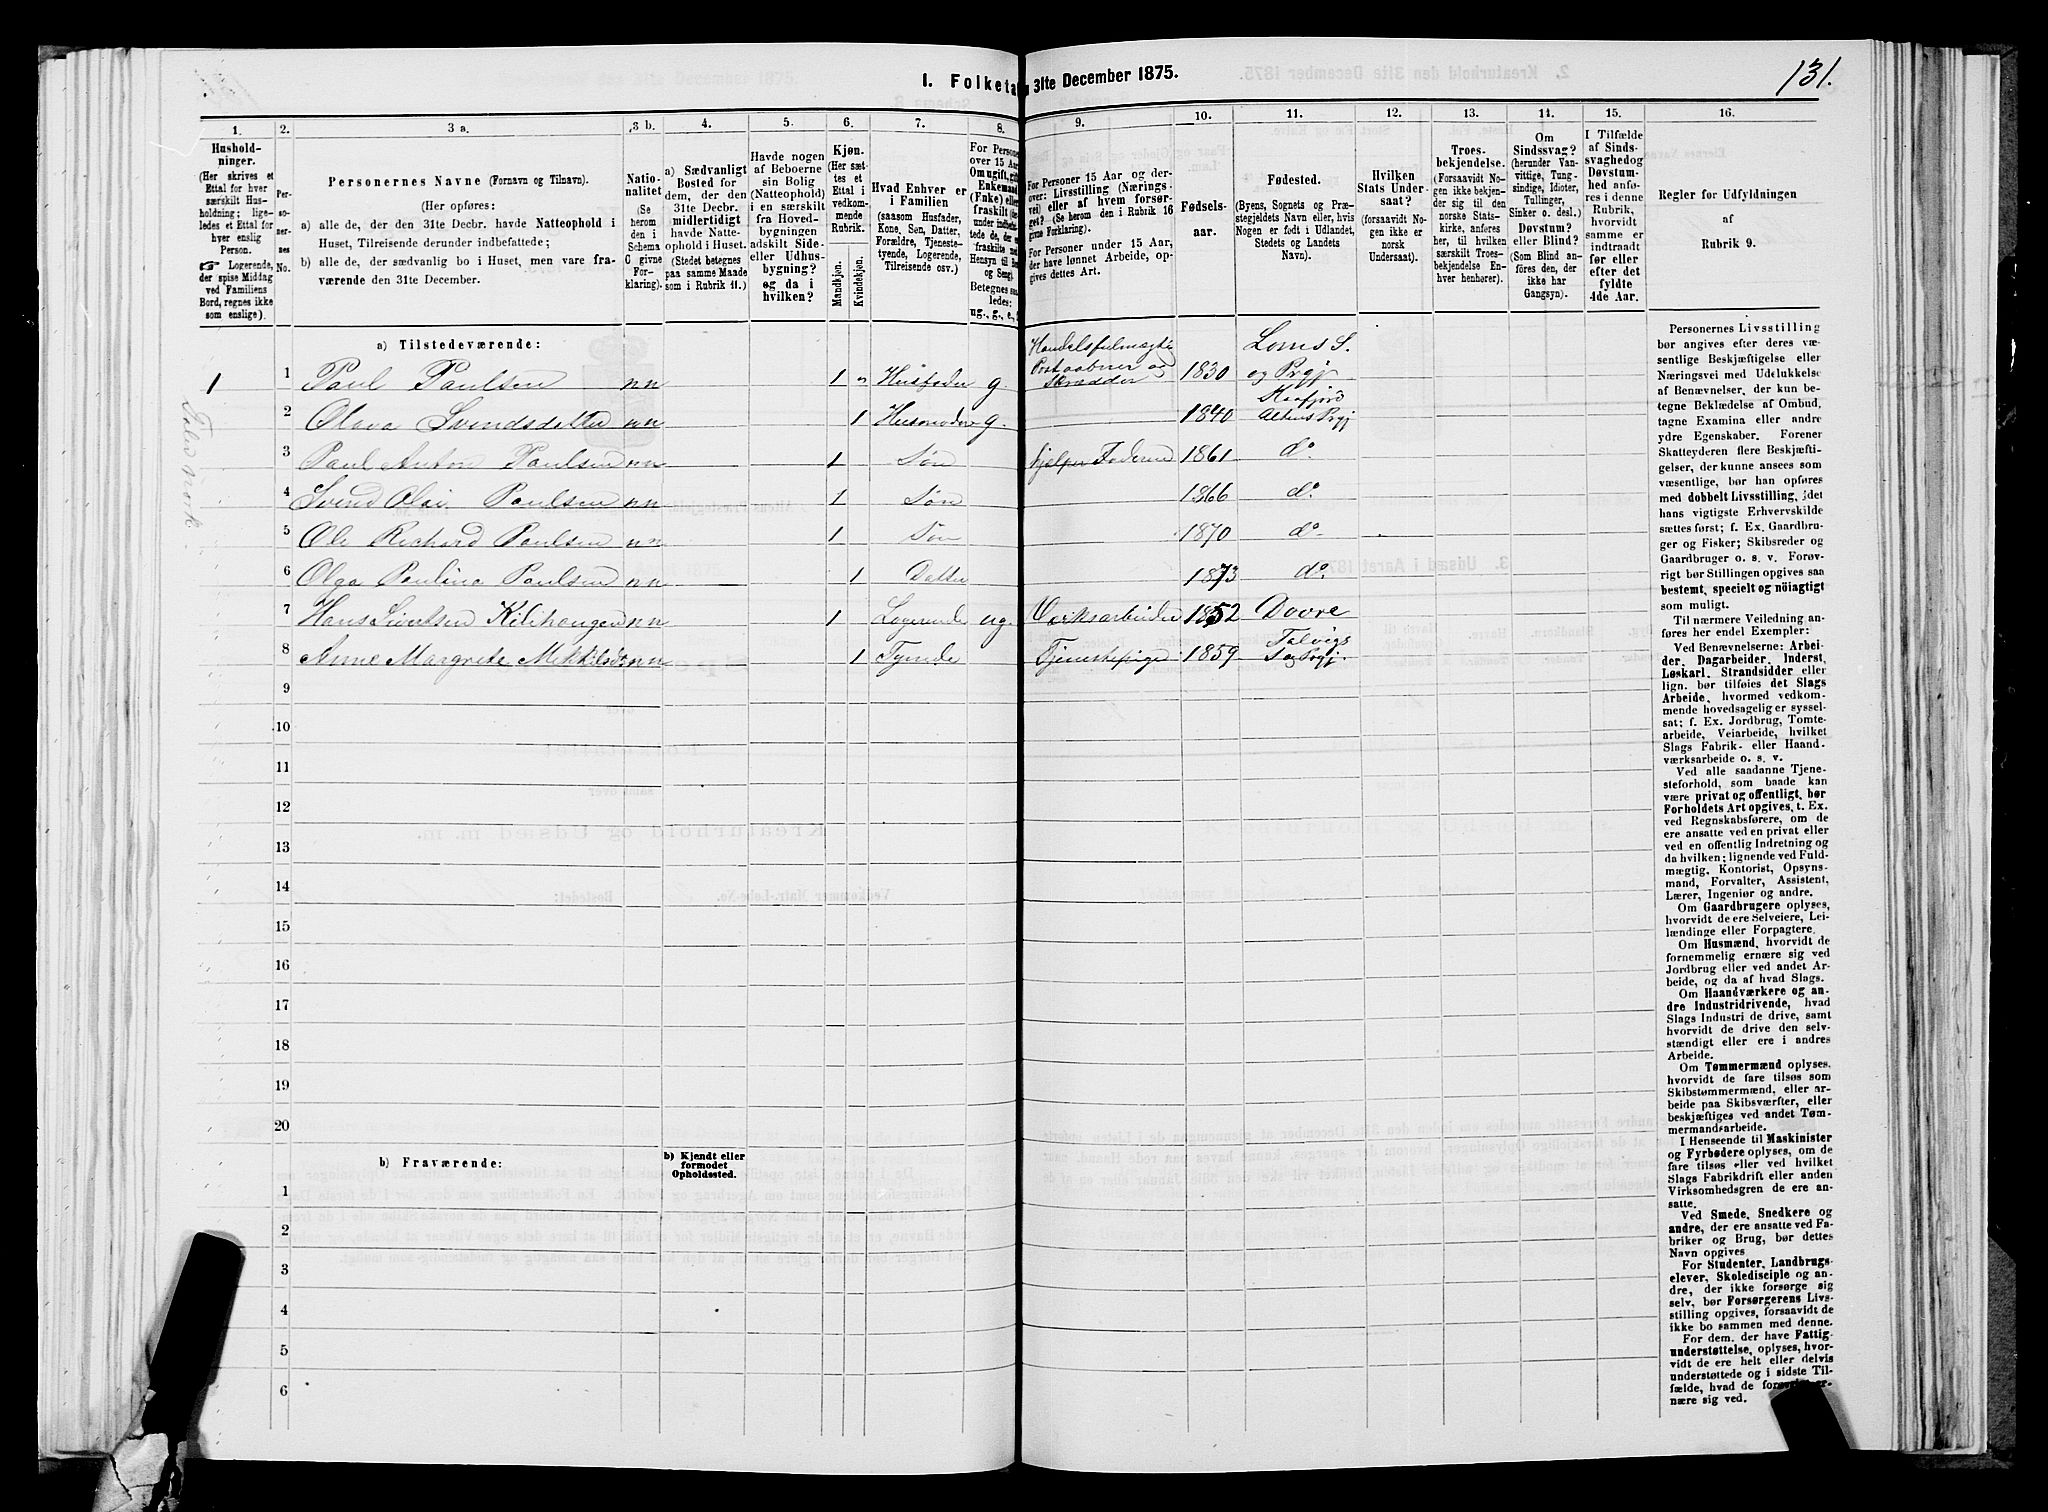 I. Folketa
31te December 1875.
131.
1.
2.
3 a.
3 b.
4.
5.
6.
7.
8.
9.
10.
11.
12.
13.
14.
15.
16.
Hushold-
ninger.
(Her skrives et
Ettal for hver
særskilt Hus-
holdning; lige-
ledes et Ettal for
hver enslig
Person.
☞ Logerende,
der spise Middag
ved Familiens
Bord, regnes ikke
som enslige).
Per-
so-
ner-
nes
No.
Personernes Navne (Fornavn og Tilnavn).
(Her opføres:
a) alle de, der den 31te Decbr. havde Natteophold i
Huset, Tilreisende derunder indbefattede;
b) alle de, der sædvanlig bo i Huset, men vare fra-
værende den 31te December.
Natio-
nalitet
(Se
herom
den i
Schema
C givne
For-
klaring).
a) Sædvanligt
Bosted for
dem, der den
31te Decbr.
midlertidigt
havde Natte-
ophold i Huset.
(Stedet betegnes
paa samme Maade
som i Rubrik 11.)
Havde nogen
af Beboerne
sin Bolig
(Natteophold)
i en særskilt
fra Hoved-
bygningen
adskilt Side-
eller Udhus-
bygning?
og da i
hvilken?
Kjøn.
(Her sæt-
tes et
Ettal i
vedkom-
mende
Rubrik.
Mandkjøn.
Kvindekjøn.
Hvad Enhver er
i Familien
(saasom Husfader,
Kone, Søn, Datter,
Forældre, Tjeneste-
tyende, Logerende,
Tilreisende osv.)
For Personer
over 15 Aar:
Om ugift, gift,
Enkemand
(Enke) eller
fraskilt
Betegnes saa-
ledes:
ug., g., e.,
For Personer 15 Aar og der-
over: Livsstilling (Nærings-
vei) eller af hvem forsør-
get? (Se herom den i Rubrik 16
givne Forklaring).
For Personer under 15 Aar,
der have lønnet Arbeide, op-
gives dettes Art.
Fødsels-
aar.
Fødested.
(Byens, Sognets og Præ-
stegjeldets Navn eller, hvis
Nogen er født i Udlandet,
Stedets og Landets
Navn).
Hvilken
Stats Under-
saat?
(forsaavidt No-
gen ikke er
norsk
Undersaat).
Troes-
bekjendelse.
(Forsaavidt No-
gen ikke bekjen-
der sig til den
norske Stats-
kirke, anføres
her, til hvilken
særskilt Troes-
bekjendelse En-
hver henhører).
Om
Sindssvag?
(herunder Van-
vittige, Tung-
sindige, Idioter,
Tullinger,
Sinker o. desl.)
Døvstum?
eller Blind?
(Som Blind an-
føres den, der
ikke har
Gangsyn).
I Tilfælde
af Sinds-
svaghed og
Døvstum-
hed anfø-
res i denne
Rubrik,
hvorvidt
samme er
indtraadt
før eller
efter det
fyldte
4de Aar.
Regler for Udfyldningen
af
Rubrik 9.
a) Tilstedeværende:
Handelsfulmægtig
1 1 Paul Paulsen nn 1 Husfader g. Postaabner og Skrædder 1830 Loms S. og Prgj
2 Olava Svendsdatter nn 1 Husmoder g. 1840 Kaafjord Altens Prgj
3 Paul Anton Paulsen nn 1 Søn hjelper Faderen 1861 do
4 Svend Olai Paulsen nn 1 Søn 1866 do
5 Ole Richard Paulsen nn 1 Søn 1870 do
6 Olga Paulina Paulsen nn 1 Datter 1873 do
7 Hans Sivertsen Kilihaugen nn 1 Logerende ug. Verksarbeider 1852 Dovre
8 Anne Margrete Mikkelsdt nn 1 Tyende Tjenestepige 1859 Talvigs S og Prgj.
Taler norsk.
9
10
11
12
13
14
15
16
17
18
19
20
b) Fraværende:
b) Kjendt eller
formodet
Opholdssted.
1
2
3
4
5
6
Personernes Livsstilling
bør angives efter deres væ-
sentlige Beskjæftigelse eller
Næringsvei med Udelukkelse
af Benævnelser, der kun be-
tegne Beklædelse af Ombud,
tagne Examina eller andre
ydre Egenskaber. Forener
Skatteyderen flere Beskjæfti-
gelser, der kunne ansees som
væsentlige, bør han opføres
med dobbelt Livsstilling, idet
hans vigtigste Erhvervskilde
sættes først; f. Ex. Gaardbru-
ger og Fisker; Skibsreder og
Gaardbruger o. s. v. Forøv-
rigt bør Stillingen opgives saa
bestemt, specielt og nøiagtigt
som muligt.
Til nærmere Veiledning an-
føres her endel Exempler:
Ved Benævnelserne: Arbei-
der, Dagarbeider, Inderst,
Løskarl, Strandsidder eller
lign. bør tilføies det Slags
Arbeide, hvormed vedkom-
mende hovedsagelig er syssel-
sat; f. Ex. Jordbrug, Tomte-
arbeide, Veiarbeide, hvilket
Slags Fabrik- eller Haand-
værksarbeide o. s. v.
Ved alle saadanne Tjene-
steforhold, som baade kan
være privat og offentligt, bør
Forholdets Art opgives, t. Ex.
ved Regnskabsførere, om de
ere ansatte ved en privat eller
ved en offentlig Indretning og
da hvilken; lignende ved Fuld-
mægtig, Kontorist, Opsyns-
mand, Forvalter, Assistent,
Lærer, Ingeniør og andre.
Om Gaardbrugere oplyses,
hvorvidt de ere Selveiere, Lei-
lændinge eller Forpagtere.
Om Husmænd, hvorvidt de
fornemmelig ernære sig ved
Jordbrug eller ved andet Ar-
beide, og da af hvad Slags.
Om Haandværkere og an-
dre Industridrivende, hvad
Slags Industri de drive, samt
hvorvidt de drive den selv-
stændigt eller ere i andres
Arbeide.
Om Tømmermænd oplyses,
hvorvidt de fare tilsøs som
Skibstømmermænd, eller ar-
beide paa Skibsværfter, eller
beskjæftiges ved andet Tøm-
mermandsarbeide.
I Henseende til Maskinister
og Fyrbødere oplyses, om de
fare tilsøs eller ved hvilket
Slags Fabrikdrift eller anden
Virksomhedsgren de ere an-
satte.
Ved Smede, Snedkere og
andre, der ere ansatte ved Fa-
briker og Brug, bør dettes
Navn opgives
For Studenter, Landbrugs-
elever, Skoledisciple og an-
dre, der ikke forsørge sig
selv, bør Forsørgerens Livs-
stilling opgives, forsaavidt de
ikke bo sammen med denne.
For dem, der have Fattig-
understøttelse, oplyses, hvor-
vidt de ere helt eller delvis
understøttede og i sidste Til-
fælde, hvad de
nære sig ved.